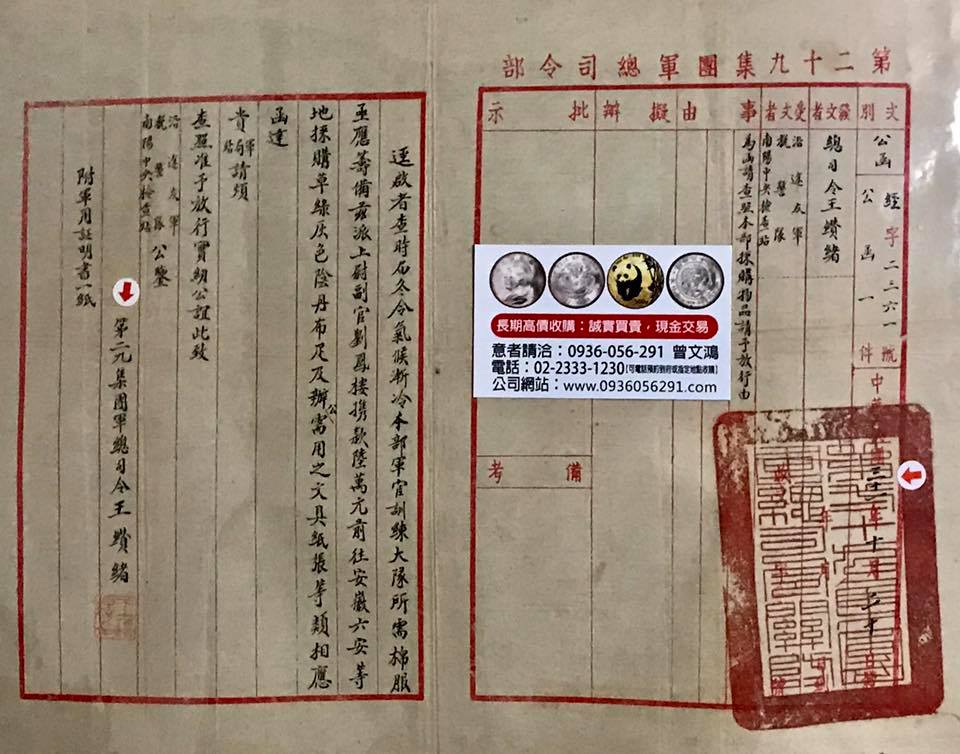 第二十九集團軍總司令部
文別
公函
經字二二六一號
公函一件
發文者
總司令王纘緒
受文者
沿途友軍
憲警隊
南陽中央檢查站
事由
為函請查照本部採購物品請予放行由
擬辦
批示
備考
三十一年十月
逕啟者查時届冬令氣候漸冷本部軍官訓練大隊所需棉服
亟應籌備茲派上尉副官劉鳳樓携款陸萬元前往安徽六安等
地採購草綠灰色陰丹布疋及辦公需用之文具紙張等類相應
函達
貴軍局站請煩
查照准予放行實紉公誼此致
沿途友軍
憲警隊
南陽中央檢查站
公鑒
第二九集團軍總司令王纘緒
附軍用証明書一紙
長期高價收購：誠實買賣，現金交易
意者請洽：0936-056-291 曾文鴻
電話：02-2333-1230【可電話預約到府或指定地點收購】
公司網站：www.0936056291.com